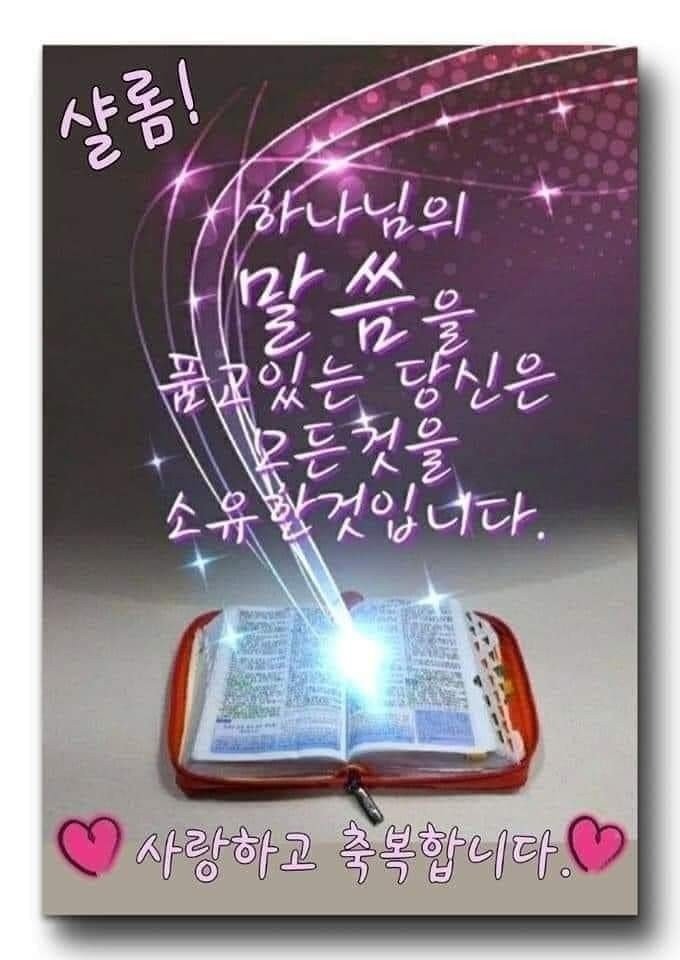 샬롬!
하나님의
말씀을
품고있는 당신은
모든것을
소유한것입니다.
사랑하고 축복합니다.